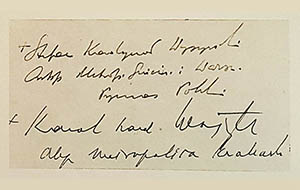 + Stefan Kardynał Wyszyński
Arbp Metrop. Gnieźn. i Warsz.
Prymas Polski
+ Karol kard. Wojtyła
Abp Metropolita Krakowski